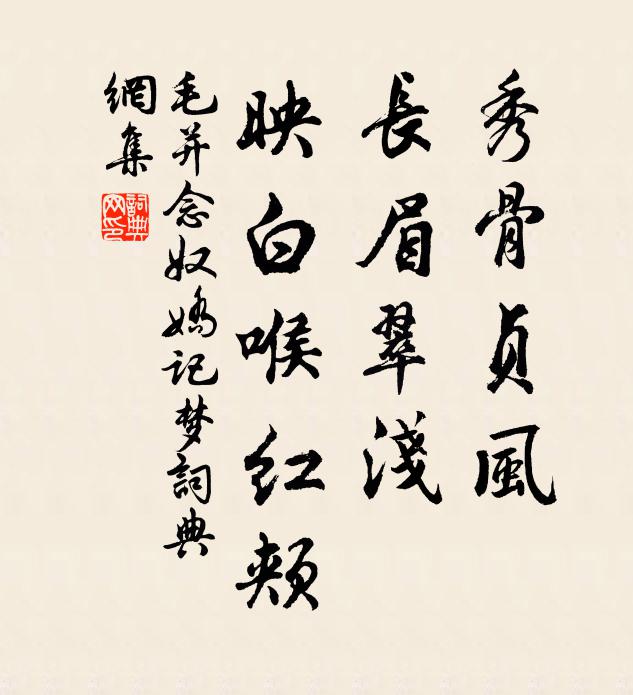 秀骨貞風
長眉翠淺
映白喉红頰
毛并念奴嬌记梦詞典
網集
詞典
网印